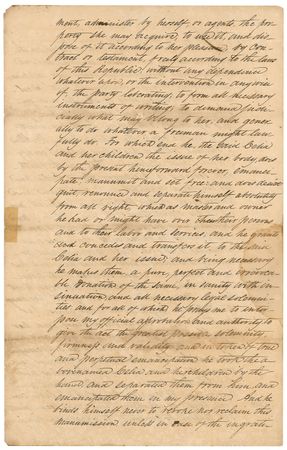 ment, administer by herself or agents, the pro-
perty she may acquire, to use it, and dis-
pose of it according to her pleasure, by Con-
tract or testament, freely according to the laws
of this Republic, without any dependence
whatever upon, or the intervention in any wise
of, the party liberating, to form all necessary
instruments of writing, to demand judi-
cially what may belong to her, and gener-
ally to do whatever a freeman might law-
fully do. For which end he, the said Celia
and her children the issue of her body, does
by the present henceforward forever, emanci-
pate, manumit and set free: and does desist
quit, renounce and separate himself absolutely
from all right, which as master and owner
he had or might have over their persons
and to their labor and services, and he grants
cedes concedes and transfers it to the said
Celia and her issue: and being necessary
he makes them a pure, perfect and irrevoca-
ble donation of the same, in sanity with in-
sinuation, and all necessary legal solemni-
ties and for all of which he prays me to inter-
pose my official approbation and authority to
give the act the greatest possible solemnity
firmness and validity and in token of true
and perpetual emancipation he took the a
forenamed Celia and her children by the
hand and separated them from him and
emancipated them in my presence. And he
binds himself never to revoke nor reclaim this
manumission unless in case of the ingrati-